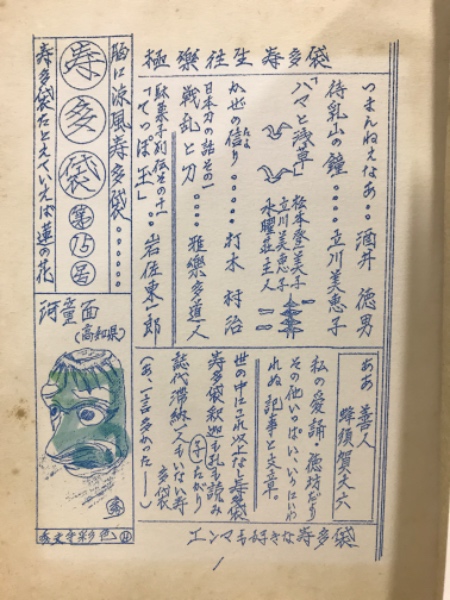 極樂往生 寿多袋
つまんねえなあ・・酒井 徳男
待乳山の鐘・・・・立川美恵子
「ハマと浅草」松本登美子
立川美恵子
水曜荘主人
かぜの信り・・・・打木 村治
日本刀の話その一
戦乱と刀・・・・雅樂多道人
駄菓子列伝その十一
「てっぽ玉」・・岩佐東一郎
ああ 善人
蜂須賀天六
私の愛誦・徳坊だより
その他いっぱい、いうにいわ
れぬ記事と文章。
世の中にこれ以上なし寿多袋
寿多袋釈迦も孔子も読み
たがり
誌代滞納一人もいない寿
多袋
(あ、一言多かったー)
エンマも好きな寿多袋
脳に涼風寿多袋・・・・・・
寿多袋
第15号
寿多袋たとえていえば蓮の花
河童面
(高知県)
1